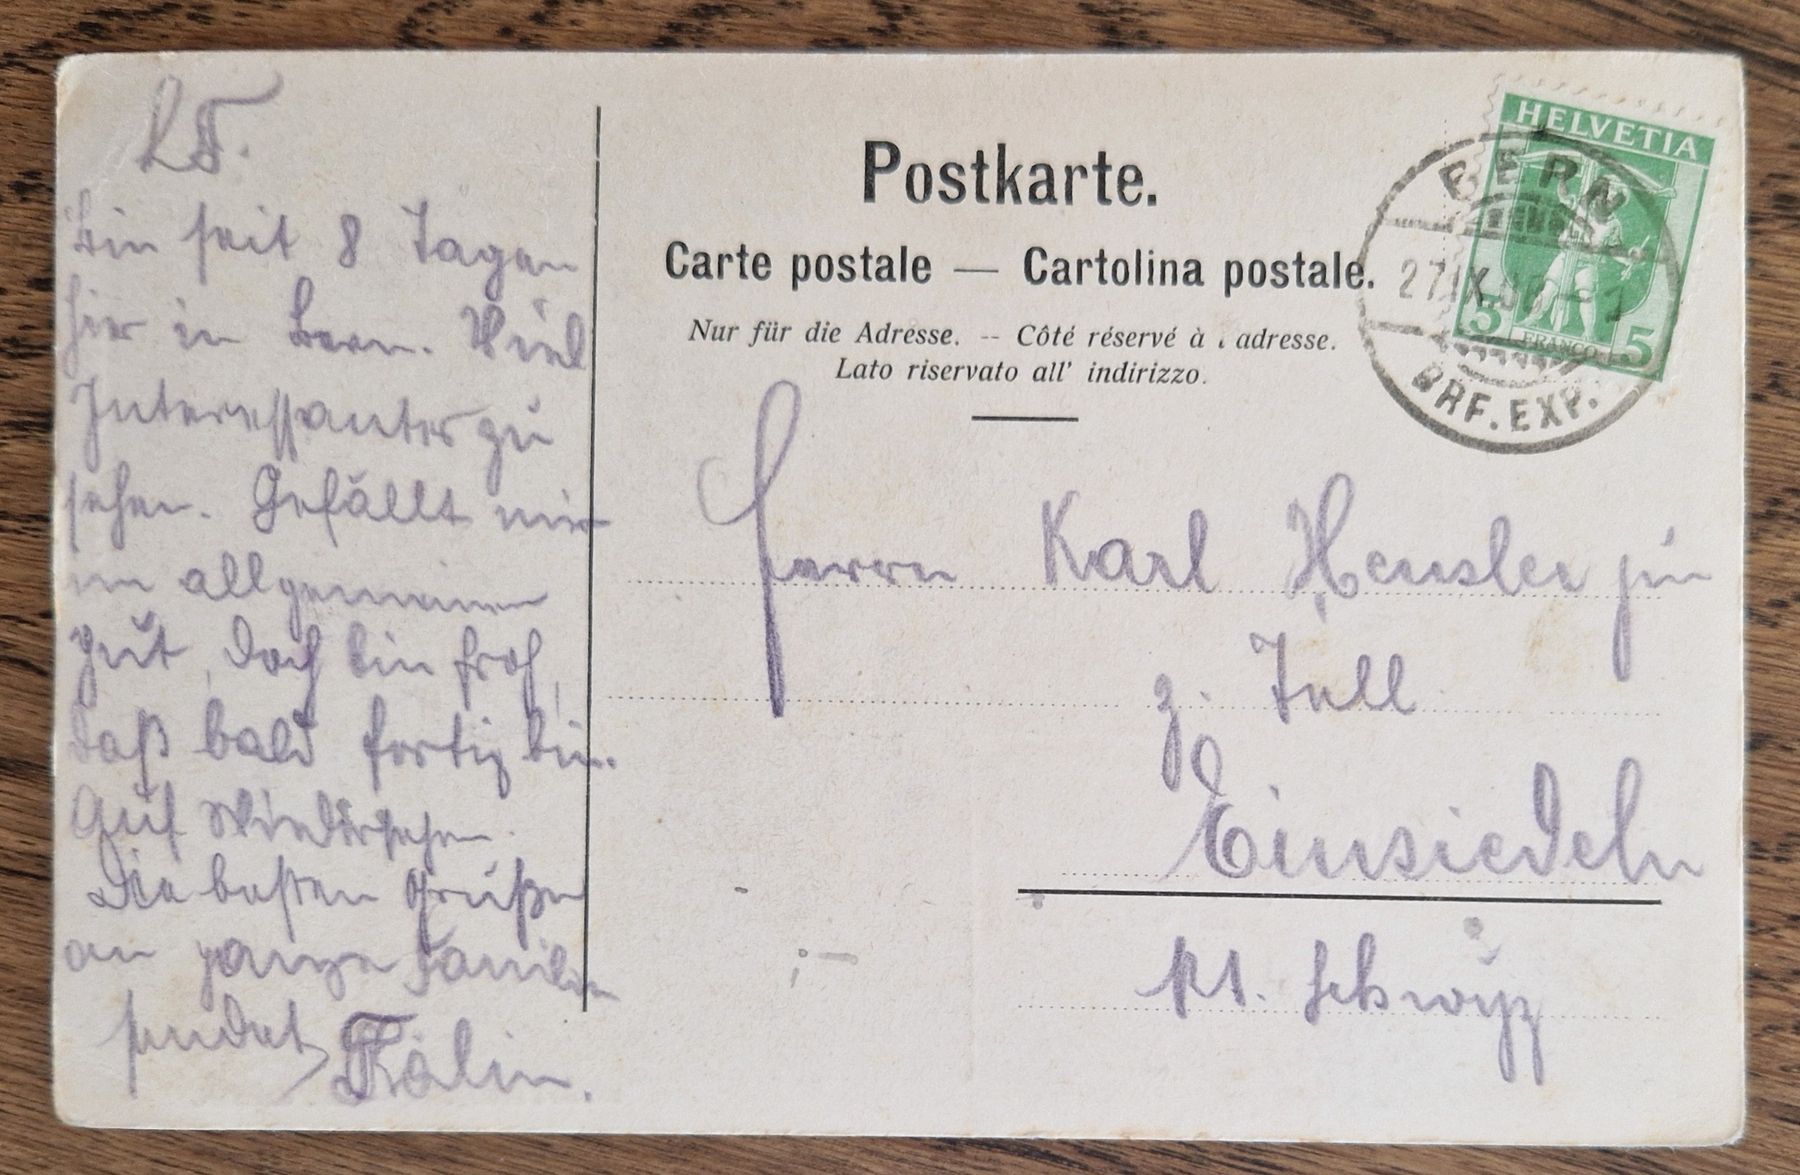 L. F.
Bin seit 8 Tagen
hier in Bern. Viel
Interessantes zu
sehen. Gefällt mir
im allgemeinen
gut, doch bin froh,
daß bald fertig bin.
Auf Wiedersehen.
Die besten Grüße
an ganze Familie
sendet Kälin.
Postkarte.
Carte postale — Cartolina postale.
Nur für die Adresse. -- Côté réservé à adresse.
Lato riservato all' indirizzo.
HELVETIA
5 FRANCO 5
BERN
BRF. EXP.
Herrn Karl Hensler jun
z. Tell
Einsiedeln
Kt. Schwÿz